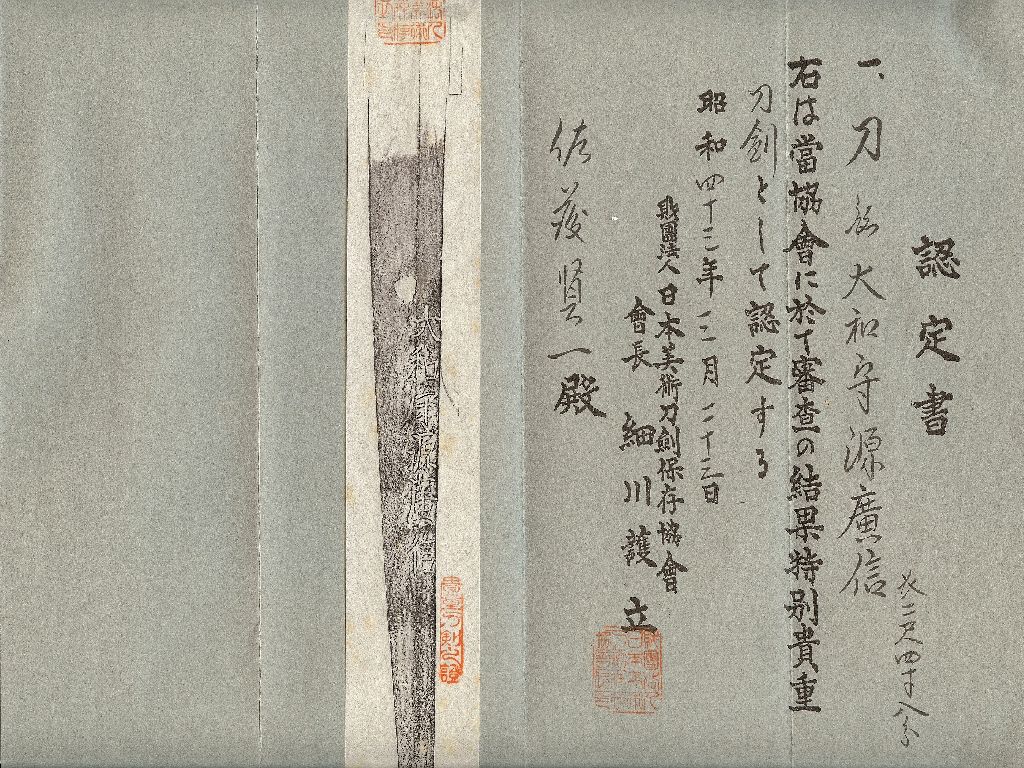 認定書
一、刀 銘 大和守源廣信
長二尺四寸八分
右は當協會に於て審査の結果特別貴重
刀劍として認定する
昭和四十三年三月二十三日
財團法人日本美術刀劍保存協會
會長 細川護立
佐藤賢一殿
貴重刀剣之證